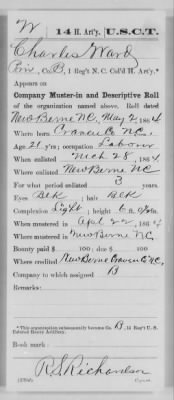 W 14 H. Art'y. U.S.C.T.
Charles Ward
Priv., Co. B, 1 Reg't N. C. Col'd H. Art'y.*
Appears on
Company Muster-in and Descriptive Roll
of the organization named above. Roll dated
New Berne N.C., May 2, 1864
Where born Craven Co N.C.
Age 21 y'rs; occupation Laborer
When enlisted Mch 28, 1864
Where enlisted New Berne N.C.
For what period enlisted 3 years.
Eyes Blk; hair Blk
Complexion Light; height 6 ft. in.
When mustered in Apl 22, 1864
Where mustered in New Berne N.C.
Bounty paid $ 100; due $ 100
Where credited New Berne Craven Co N.C.
Company to which assigned B
Remarks:
*This organization subsequently became Co. B, 14 Reg't U. S. Colored Heavy Artillery.
Book mark:
R S Richardson
Copyist.